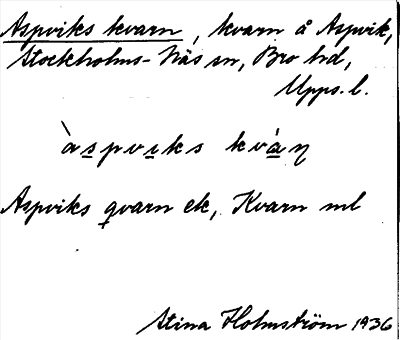 Aspviks kvarn, kvarn å Aspvik,
Stockholms-Näs sn, Bro hd,
Upps. l.
àspviks kvàn
Aspviks qvarn ek, Kvarn ml
Stina Holmström 1936